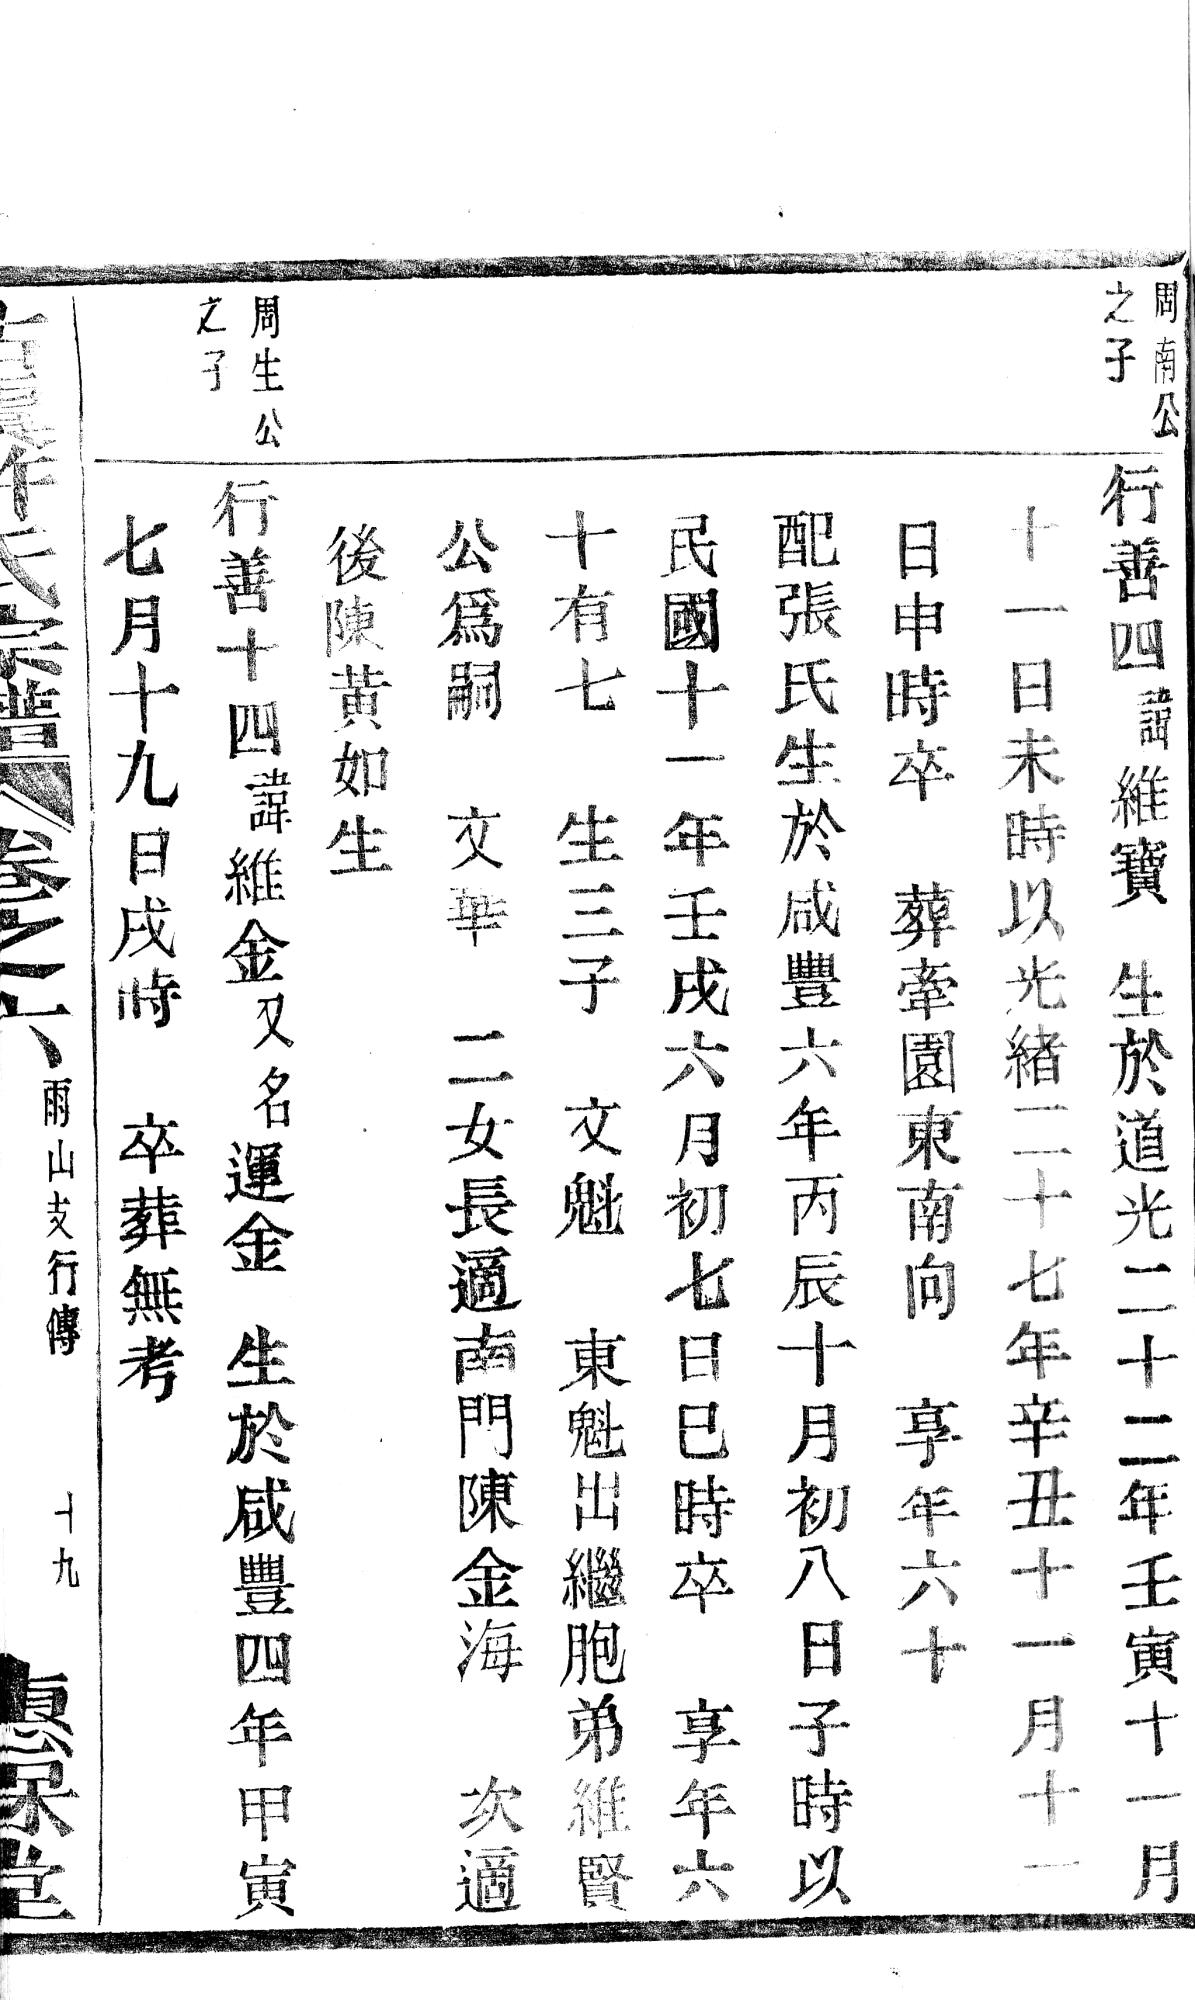 周南公
之子
行善四諱維寶　生於道光二十二年壬寅十一月
十一日未時以光緒二十七年辛丑十一月十一
日申時卒　葬牽園東南向　享年六十
配張氏生於咸豐六年丙辰十月初八日子時以
民國十一年壬戌六月初七日巳時卒　享年六
十有七　生三子　文魁　東魁出繼胞弟維賢
公爲嗣　文華　二女長適南門陳金海　次適
後陳黃如生
周生公
之子
行善十四諱維金又名運金　生於咸豐四年甲寅
七月十九日戌時　卒葬無考
氏宗譜　卷之六　雨山支行傳　十九